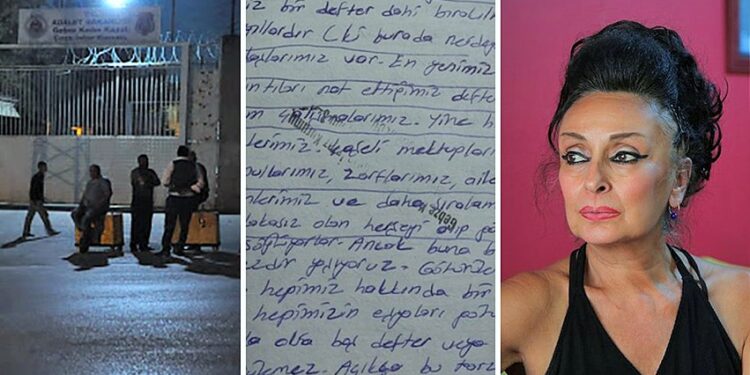 ADALET BAKANLIĞI
Gebze Kadın Kapalı
bir defter dahi bırakılm
yıllardır (ki burada nerdey
taşlarımız var. En yenimiz
ntıları not ettiğimiz defter
m çalışmalarımız. Yine h
lerimiz kaşeli mektupları
pullarımız, zarflarımız, aile
nlerimiz ve daha sıralam
lakasız olan herşeyi alıp
GEBZE
söylüyorlar. Ancak buna b
yazıyoruz. Götürüle
hepimiz hakkında bir
hepimizin eşyaları götü
da olsa boş defter veya
ilemez. Açıkça bu tarz